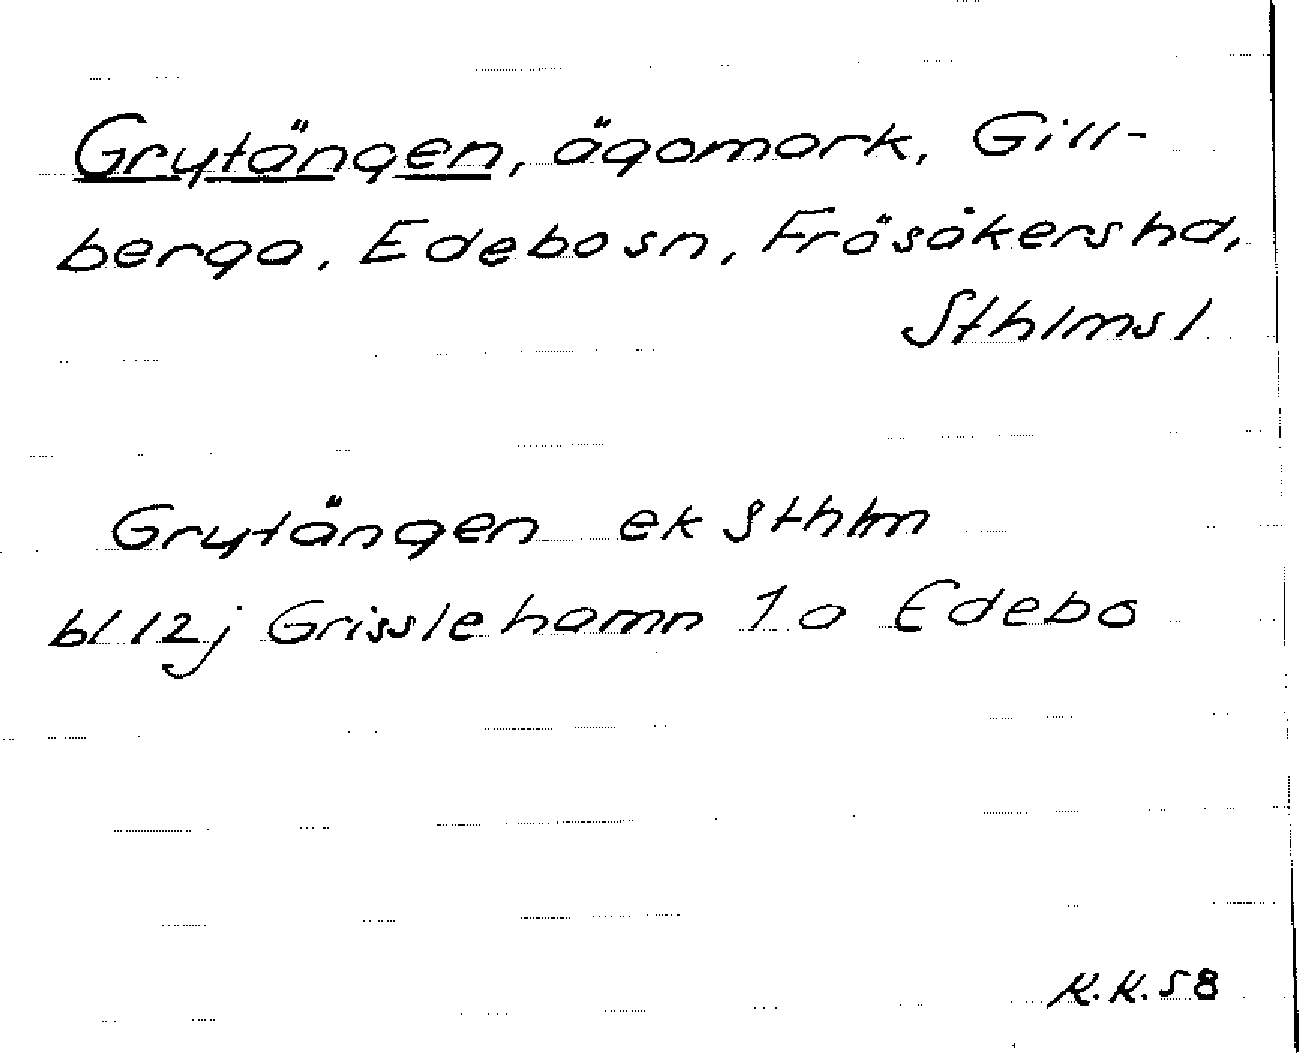 Grytängen, ägomark, Gill-
berga, Edebosn, Frösåkershd,
Sthlmsl
Grytängen ek Sthlm
bl 12j Grisslehamn 1a Edebo
K.K.58